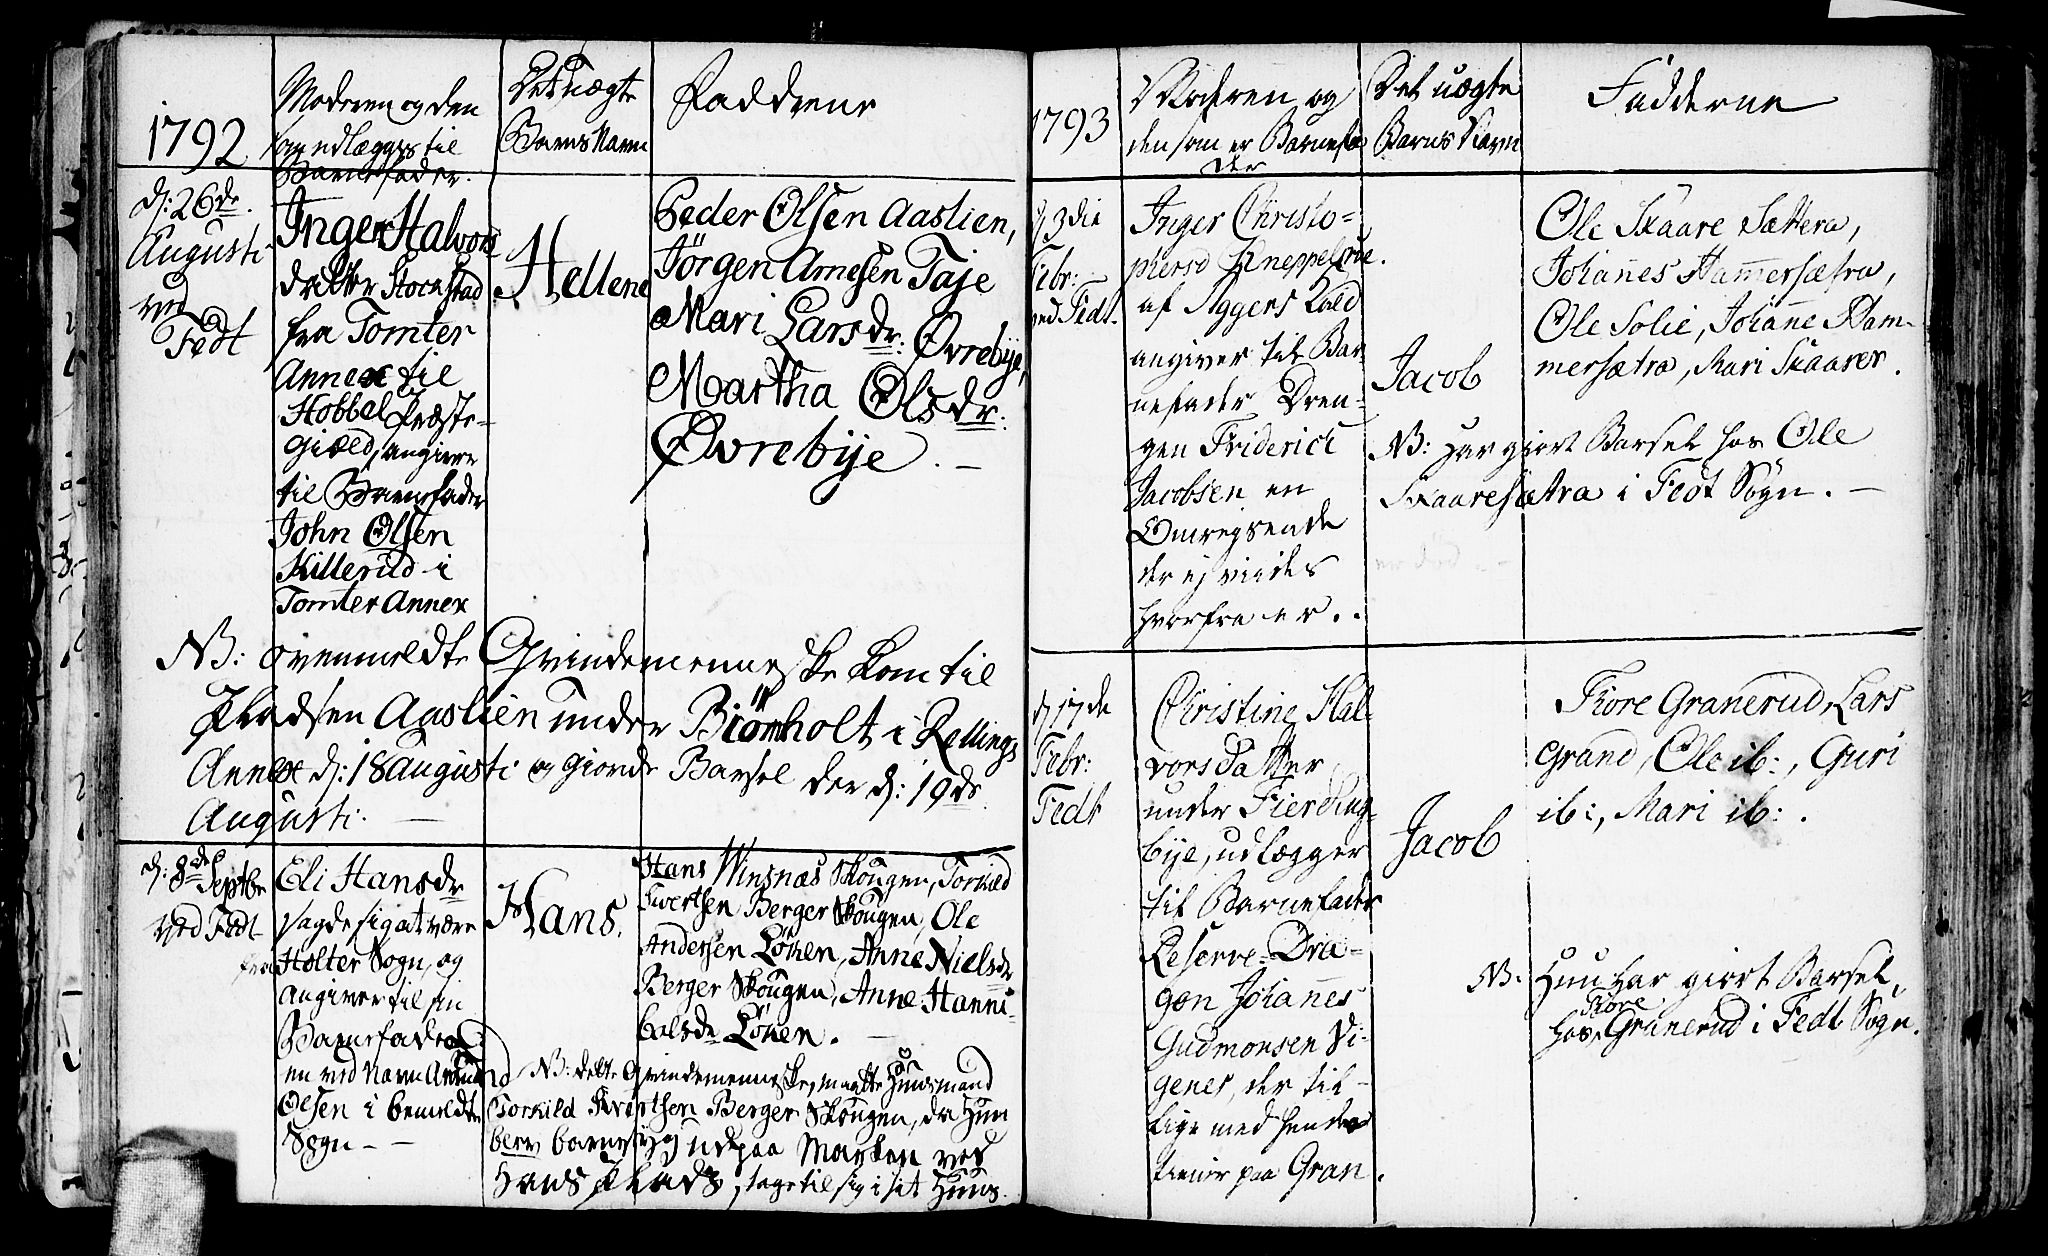 1792
Moderen og den
som udlægges til
Barnefader.
Det uægte
Barns Navn
Faddrene
d: 26de
Augusti
ved
Fedt
Inger Halvors
datter Stochstad
fra Tomter
Annex til
Hobbel Præste-
Gield, angiver
til Barnefader
John Olsen
Killerud i
Tomter Annex
Hellene
Peder Olsen Aaslien,
Jörgen Arnesen Taje
Mari Larsdr: Øvrebye,
Martha Olsdr:
Øvrebye. -
NB: ovenmeldte Qvindemenneske kom til
Pladsen Aaslien under Biörnholt i Rellings
Annex d: 18 Augusti og giorde Barsel der d: 19de
Augusti. -
d: 8de Septbr
ved Fedt
Eli Hansdr
sagde sig at være
fra Holter Sogn, og
angiver til sin
Barnefader
en ved Navn Amund
Olsen i bemeldte
Sogn - -
Hans.
Hans Winsnæs Skougen, Torkild
Iwertsen Berger Skougen, Ole
Andersen Löken, Anne Nielsdr
Berger Skougen, Anne Hanni-
balsdr Löken. -
NB: dette Qvindemenneske, maatte Huusmand
Torkild Iwertsen Berger Skougen, da Hun
blev barnesyg ude paa Marken ved
Hans Plads, tage til sig i sit Huus.
1793
Modren og
den som er Barnefa
der
Det uægte
Barns Navn
Fadderne
d 3die
Febr:
ved Fedt.
Inger Christo-
phersd Kneppelrue.
af Aggers Sold
angiver til Bar-
nefader Dren-
gen Friderich
Jacobsen en
Omreysende
der ej viides
hvorfra er. .
Jacob
Ole Skaare Sættera,
Johannes Hammersætra,
Ole Solie, Johanne Ham-
mersætra, Mari Skaarer.
NB: Har giort Barsel hos Ole
Skaaresætra i Fedt Sögn. -
d 17de
Febr:
Fedt
Christine Hal-
vorsdatter
under Fierding-
bye, udlægger
til Barnefader
Reserve-Dra-
gon Johannes
Gudmonsen Vi-
genes, der til-
lige med hende
tiener paa Gran.
Jacob
Tore Granerud, Lars
Grand, Ole ib:, Guri
ib:, Mari ib: .
NB: Hun har giort Barsel,
hos Tore Granerud i Fedt Sogn.